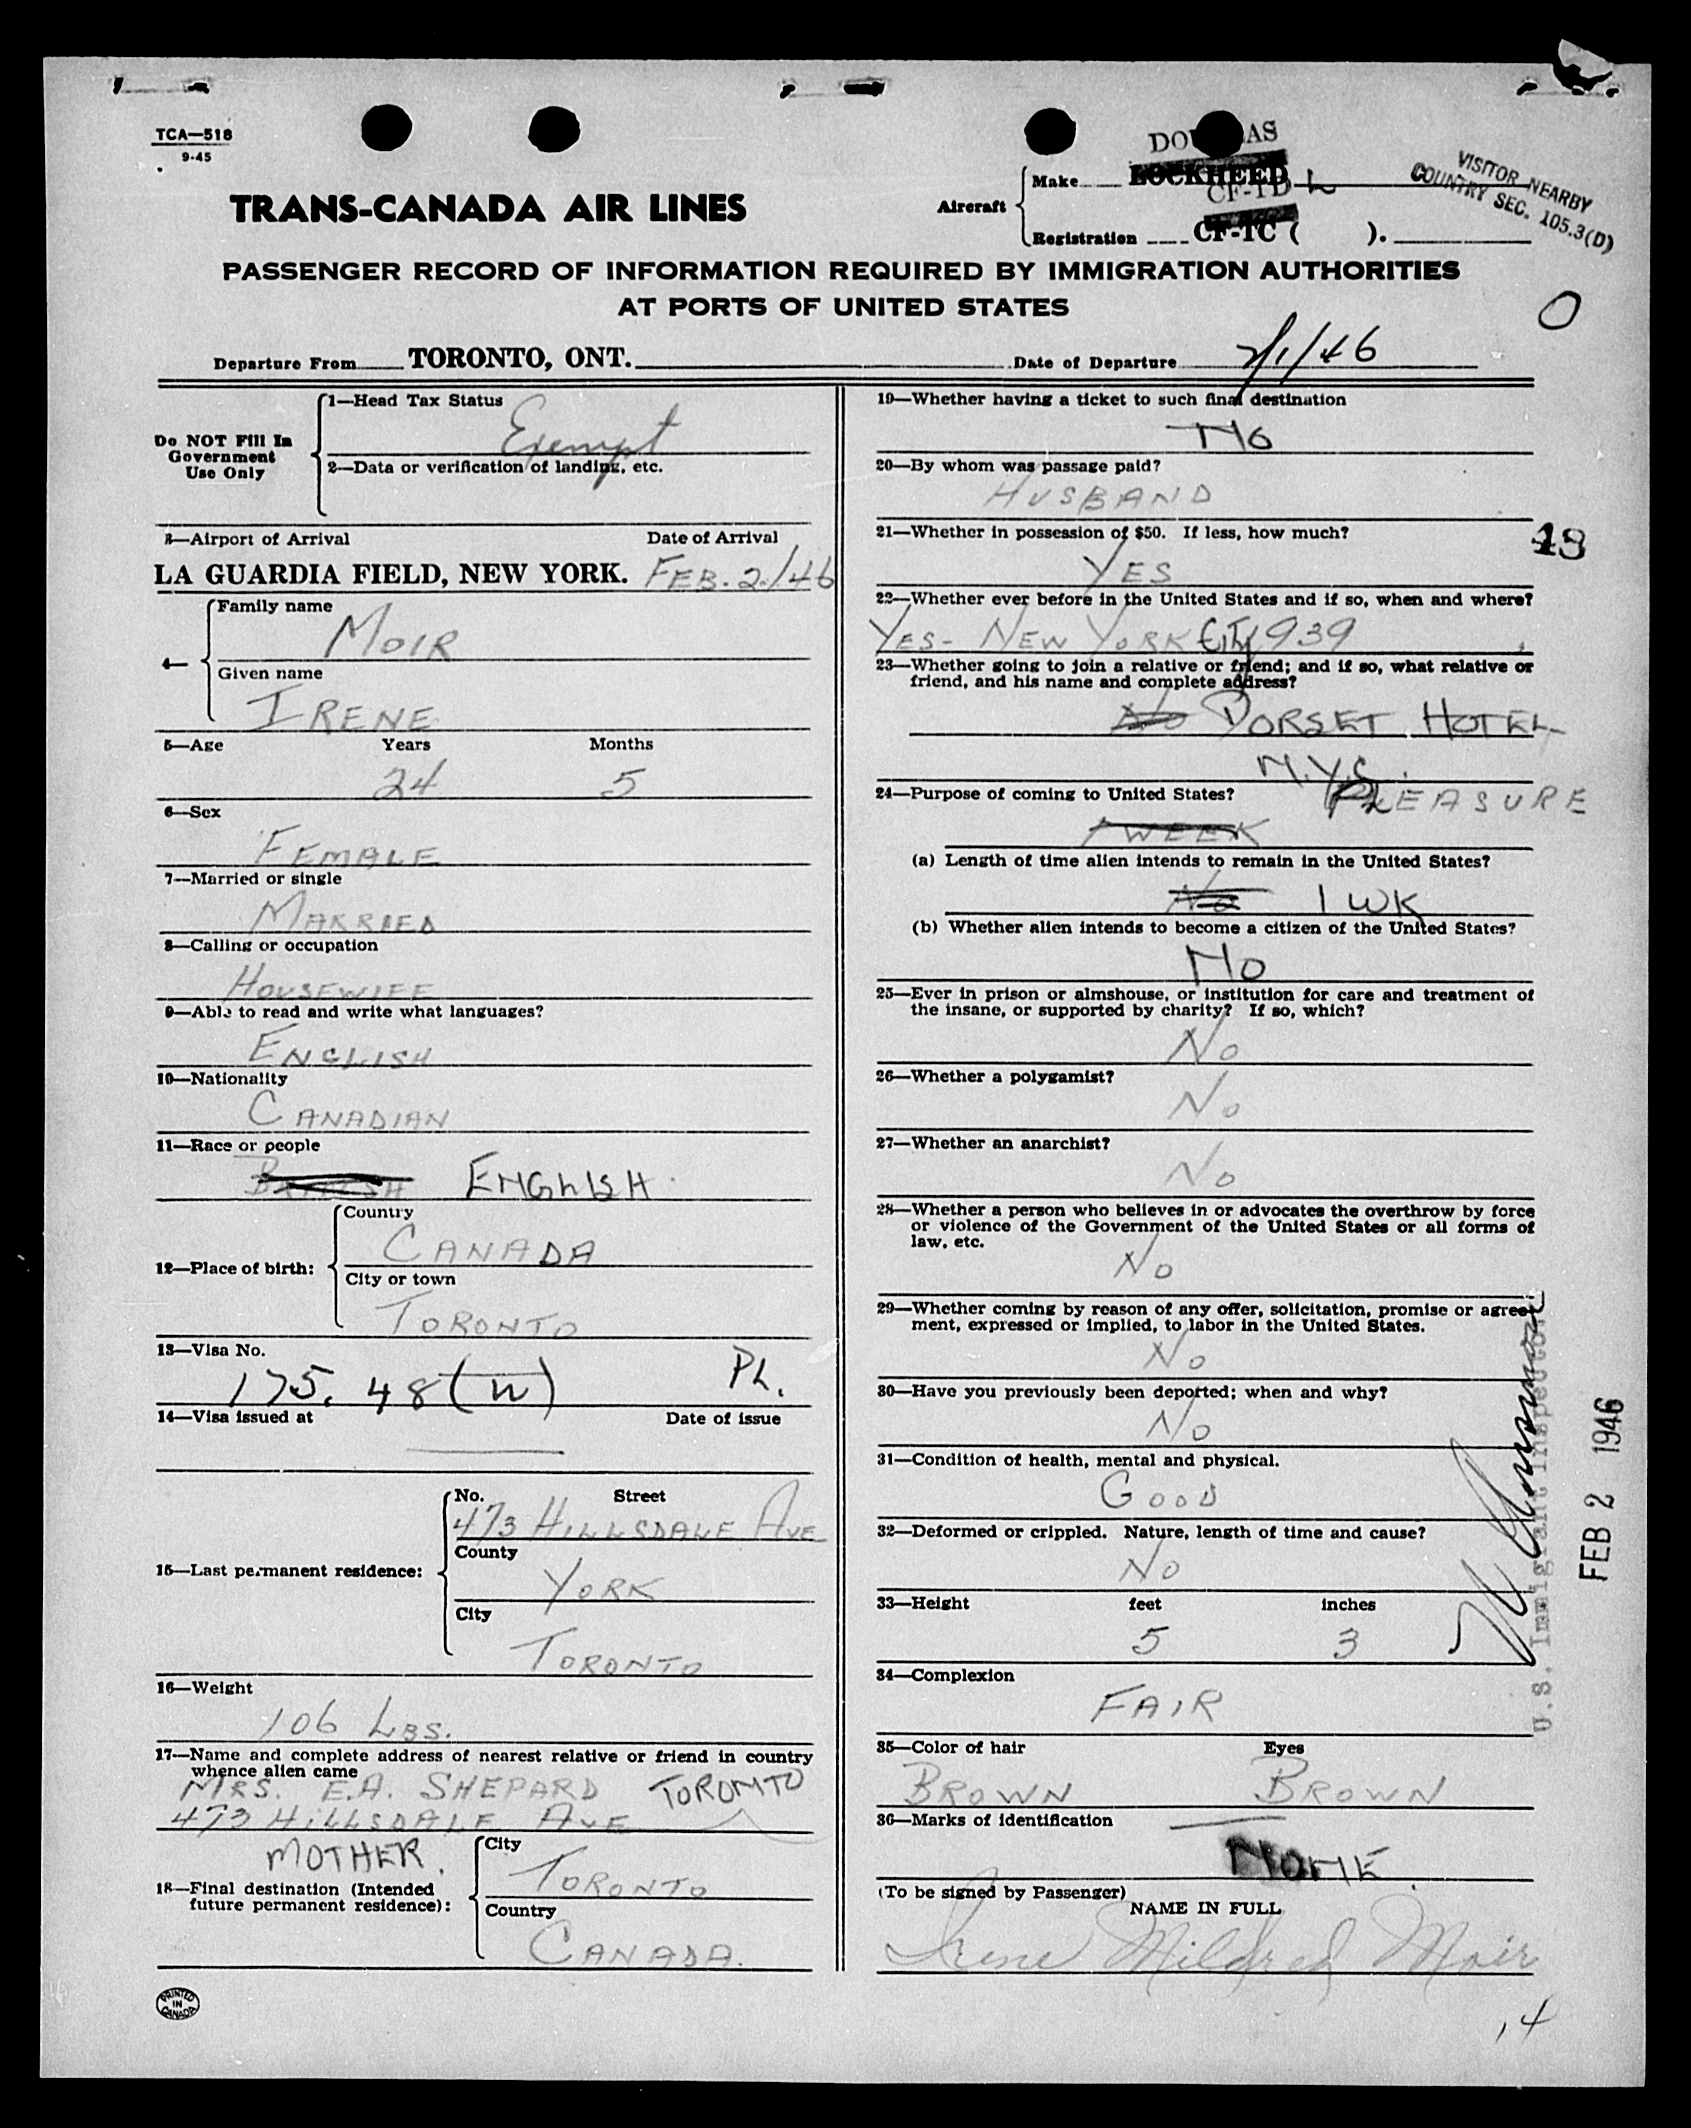 TCA—518
9-45
DO AS
Aircraft
Make LOCKHEED
CF-TD L
Registration CF-TC ( ).
VISITOR NEARBY
COUNTRY SEC. 105.3(D)
TRANS-CANADA AIR LINES
PASSENGER RECORD OF INFORMATION REQUIRED BY IMMIGRATION AUTHORITIES
AT PORTS OF UNITED STATES
O
Departure From TORONTO, ONT. Date of Departure 2/1/46
Do NOT Fill In
Government
Use Only
1—Head Tax Status
Exempt
2—Data or verification of landing, etc.
3—Airport of Arrival Date of Arrival
LA GUARDIA FIELD, NEW YORK. FEB. 2/46
4—
Family name
MOIR
Given name
IRENE
5—Age Years Months
24 5
6—Sex
FEMALE
7—Married or single
MARRIED
8—Calling or occupation
HOUSEWIFE
9—Able to read and write what languages?
ENGLISH
10—Nationality
CANADIAN
11—Race or people
BRITISH ENGLISH
12—Place of birth:
Country
CANADA
City or town
TORONTO
13—Visa No.
175.48(w) PL.
14—Visa issued at Date of issue
15—Last permanent residence:
No. Street
473 HILLSDALE AVE
County
YORK
City
TORONTO
16—Weight
106 LBS.
17—Name and complete address of nearest relative or friend in country
whence alien came
MRS. E.A. SHEPARD TORONTO
473 HILLSDALE AVE
MOTHER.
18—Final destination (Intended
future permanent residence):
City
TORONTO
Country
CANADA.
PRINTED
IN
CANADA
19—Whether having a ticket to such final destination
NO
20—By whom was passage paid?
HUSBAND
21—Whether in possession of $50. If less, how much?
YES
48
22—Whether ever before in the United States and if so, when and where?
YES- NEW YORK CITY 1939
23—Whether going to join a relative or friend; and if so, what relative or
friend, and his name and complete address?
No DORSET HOTEL
N.Y.C.
24—Purpose of coming to United States? PLEASURE
1 WEEK
(a) Length of time alien intends to remain in the United States?
No 1 WK
(b) Whether alien intends to become a citizen of the United States?
NO
25—Ever in prison or almshouse, or institution for care and treatment of
the insane, or supported by charity? If so, which?
No
26—Whether a polygamist?
No
27—Whether an anarchist?
No
28—Whether a person who believes in or advocates the overthrow by force
or violence of the Government of the United States or all forms of
law, etc.
No
29—Whether coming by reason of any offer, solicitation, promise or agree-
ment, expressed or implied, to labor in the United States.
No
30—Have you previously been deported; when and why?
No
31—Condition of health, mental and physical.
GOOD
32—Deformed or crippled. Nature, length of time and cause?
No
33—Height feet inches
5 3
34—Complexion
FAIR
35—Color of hair Eyes
BROWN BROWN
36—Marks of identification
NONE.
(To be signed by Passenger)
NAME IN FULL
Irene Mildred Moir
U.S. Immigrant Inspector
FEB 2 1946
14